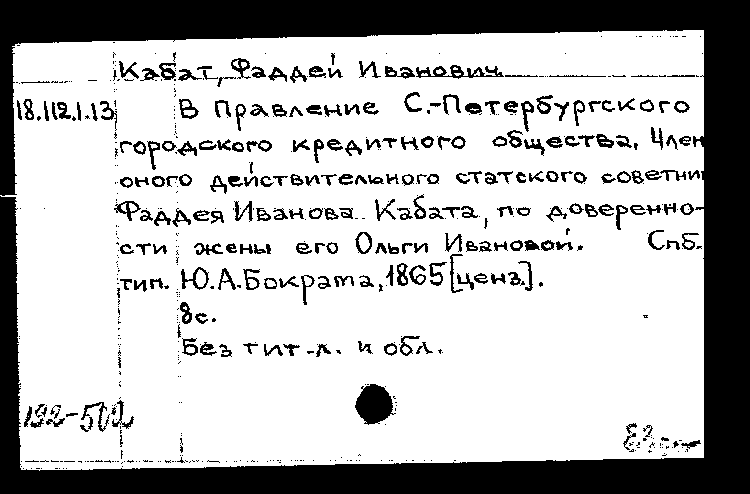 Кабат, Фаддей Иванович.
18.112.1.13 В Правление С.-Петербургского
городского кредитного общества. Член
оного действительного статского советни
Фаддея Иванова Кабата, по доверенно-
сти жены его Ольги Ивановой. Спб.
тип. Ю.А.Бократа, 1865 [ценз.].
8с.
Без тит.л. и обл.
192-502